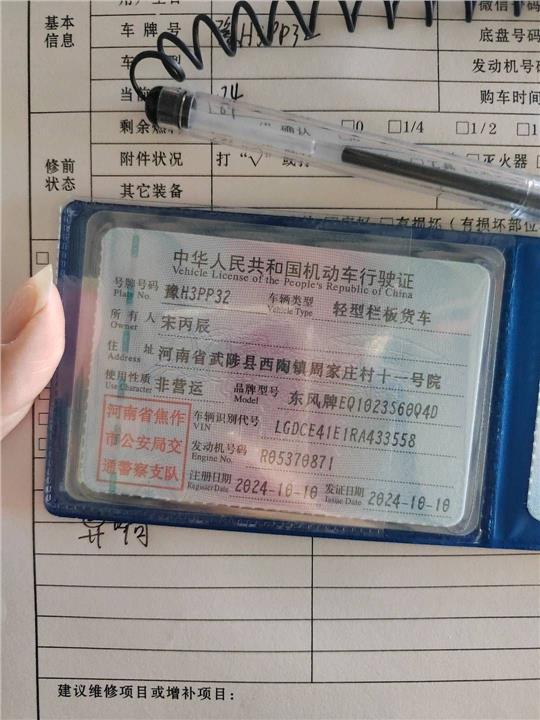 微信号码
基本
信息
车牌号
豫H3PP32
底盘号码
发动机号码
当前
24
购车时间
剩余燃
确认
□0 □1/4 □1/2
修前
状态
附件状况
打“√”或
灭火器
其它装备
□有损坏(有损坏部位
中华人民共和国机动车行驶证
Vehicle License of the People's Republic of China
号牌号码 豫H3PP32 车辆类型 轻型栏板货车
Plate No. Vehicle Type
所有人 宋丙辰
Owner
住址 河南省武陟县西陶镇周家庄村十一号院
Address
使用性质 非营运 品牌型号 东风牌EQ1023S60Q4D
Use Character Model
河南省焦作
市公安局交
通警察支队
车辆识别代号 LGDCE41E1RA433558
VIN
发动机号码 R05370871
Engine No.
注册日期 2024-10-10 发证日期 2024-10-10
Register Date Issue Date
建议维修项目或增补项目: